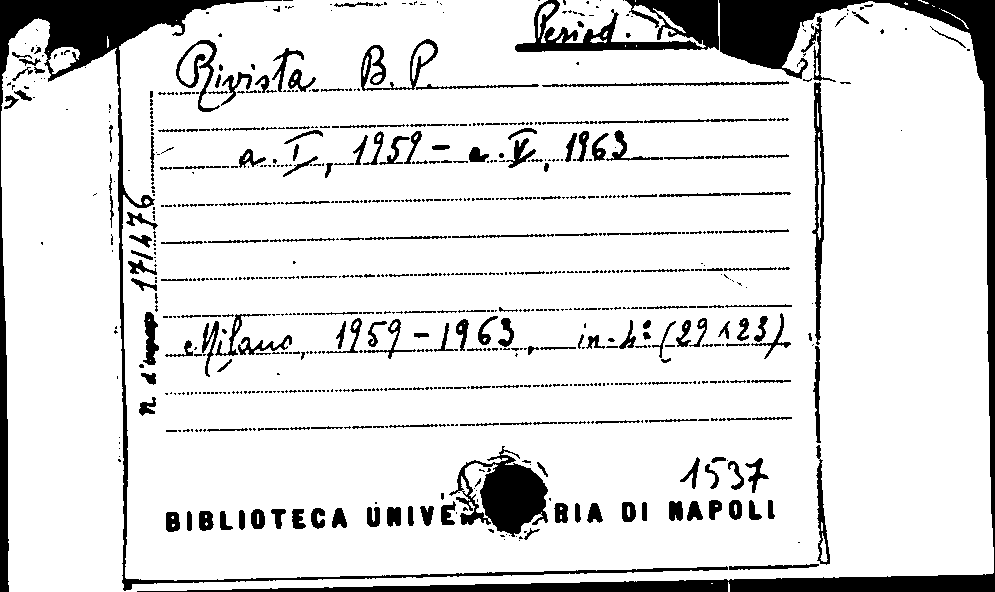 Period.
Rivista B. P.
a. I, 1959 - a. V, 1963
n. d'ingresso 171476
Milano, 1959-1963, in-4º (29x23).
1537
BIBLIOTECA UNIVE RIA DI NAPOLI